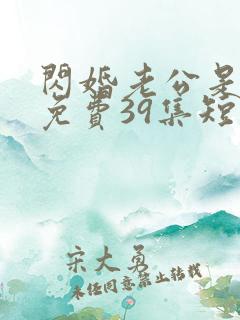 閃婚老公是
免費39集短
宋大勇
未經同意禁止轉載